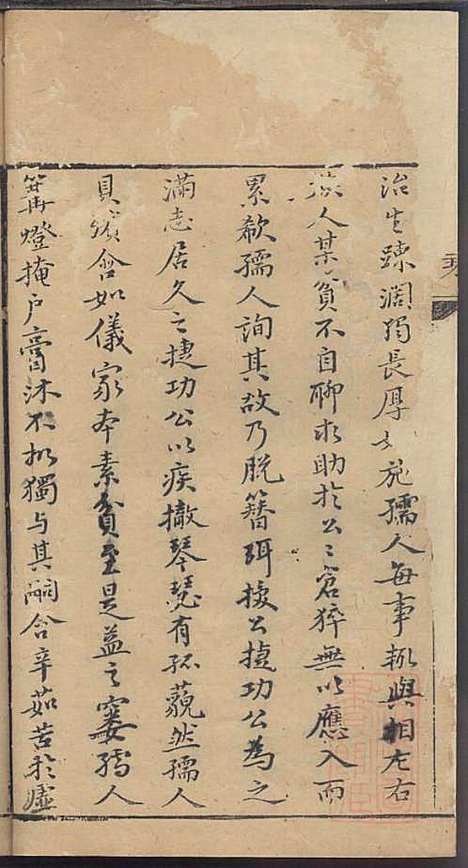 治生踈濶獨長厚好施孺人每事輙與相左右
族人某貧不自聊求助於公〻窘猝無以應入而
累欷孺人詢其故乃脱簪珥授公捷功公為之
滿志居久之捷功公以疾撤琴瑟有孤藐然孺人
具殯含如儀家本素貧至是益之窶孺人
篝燈掩户膏沐不御獨与其嗣含辛茹苦於爐